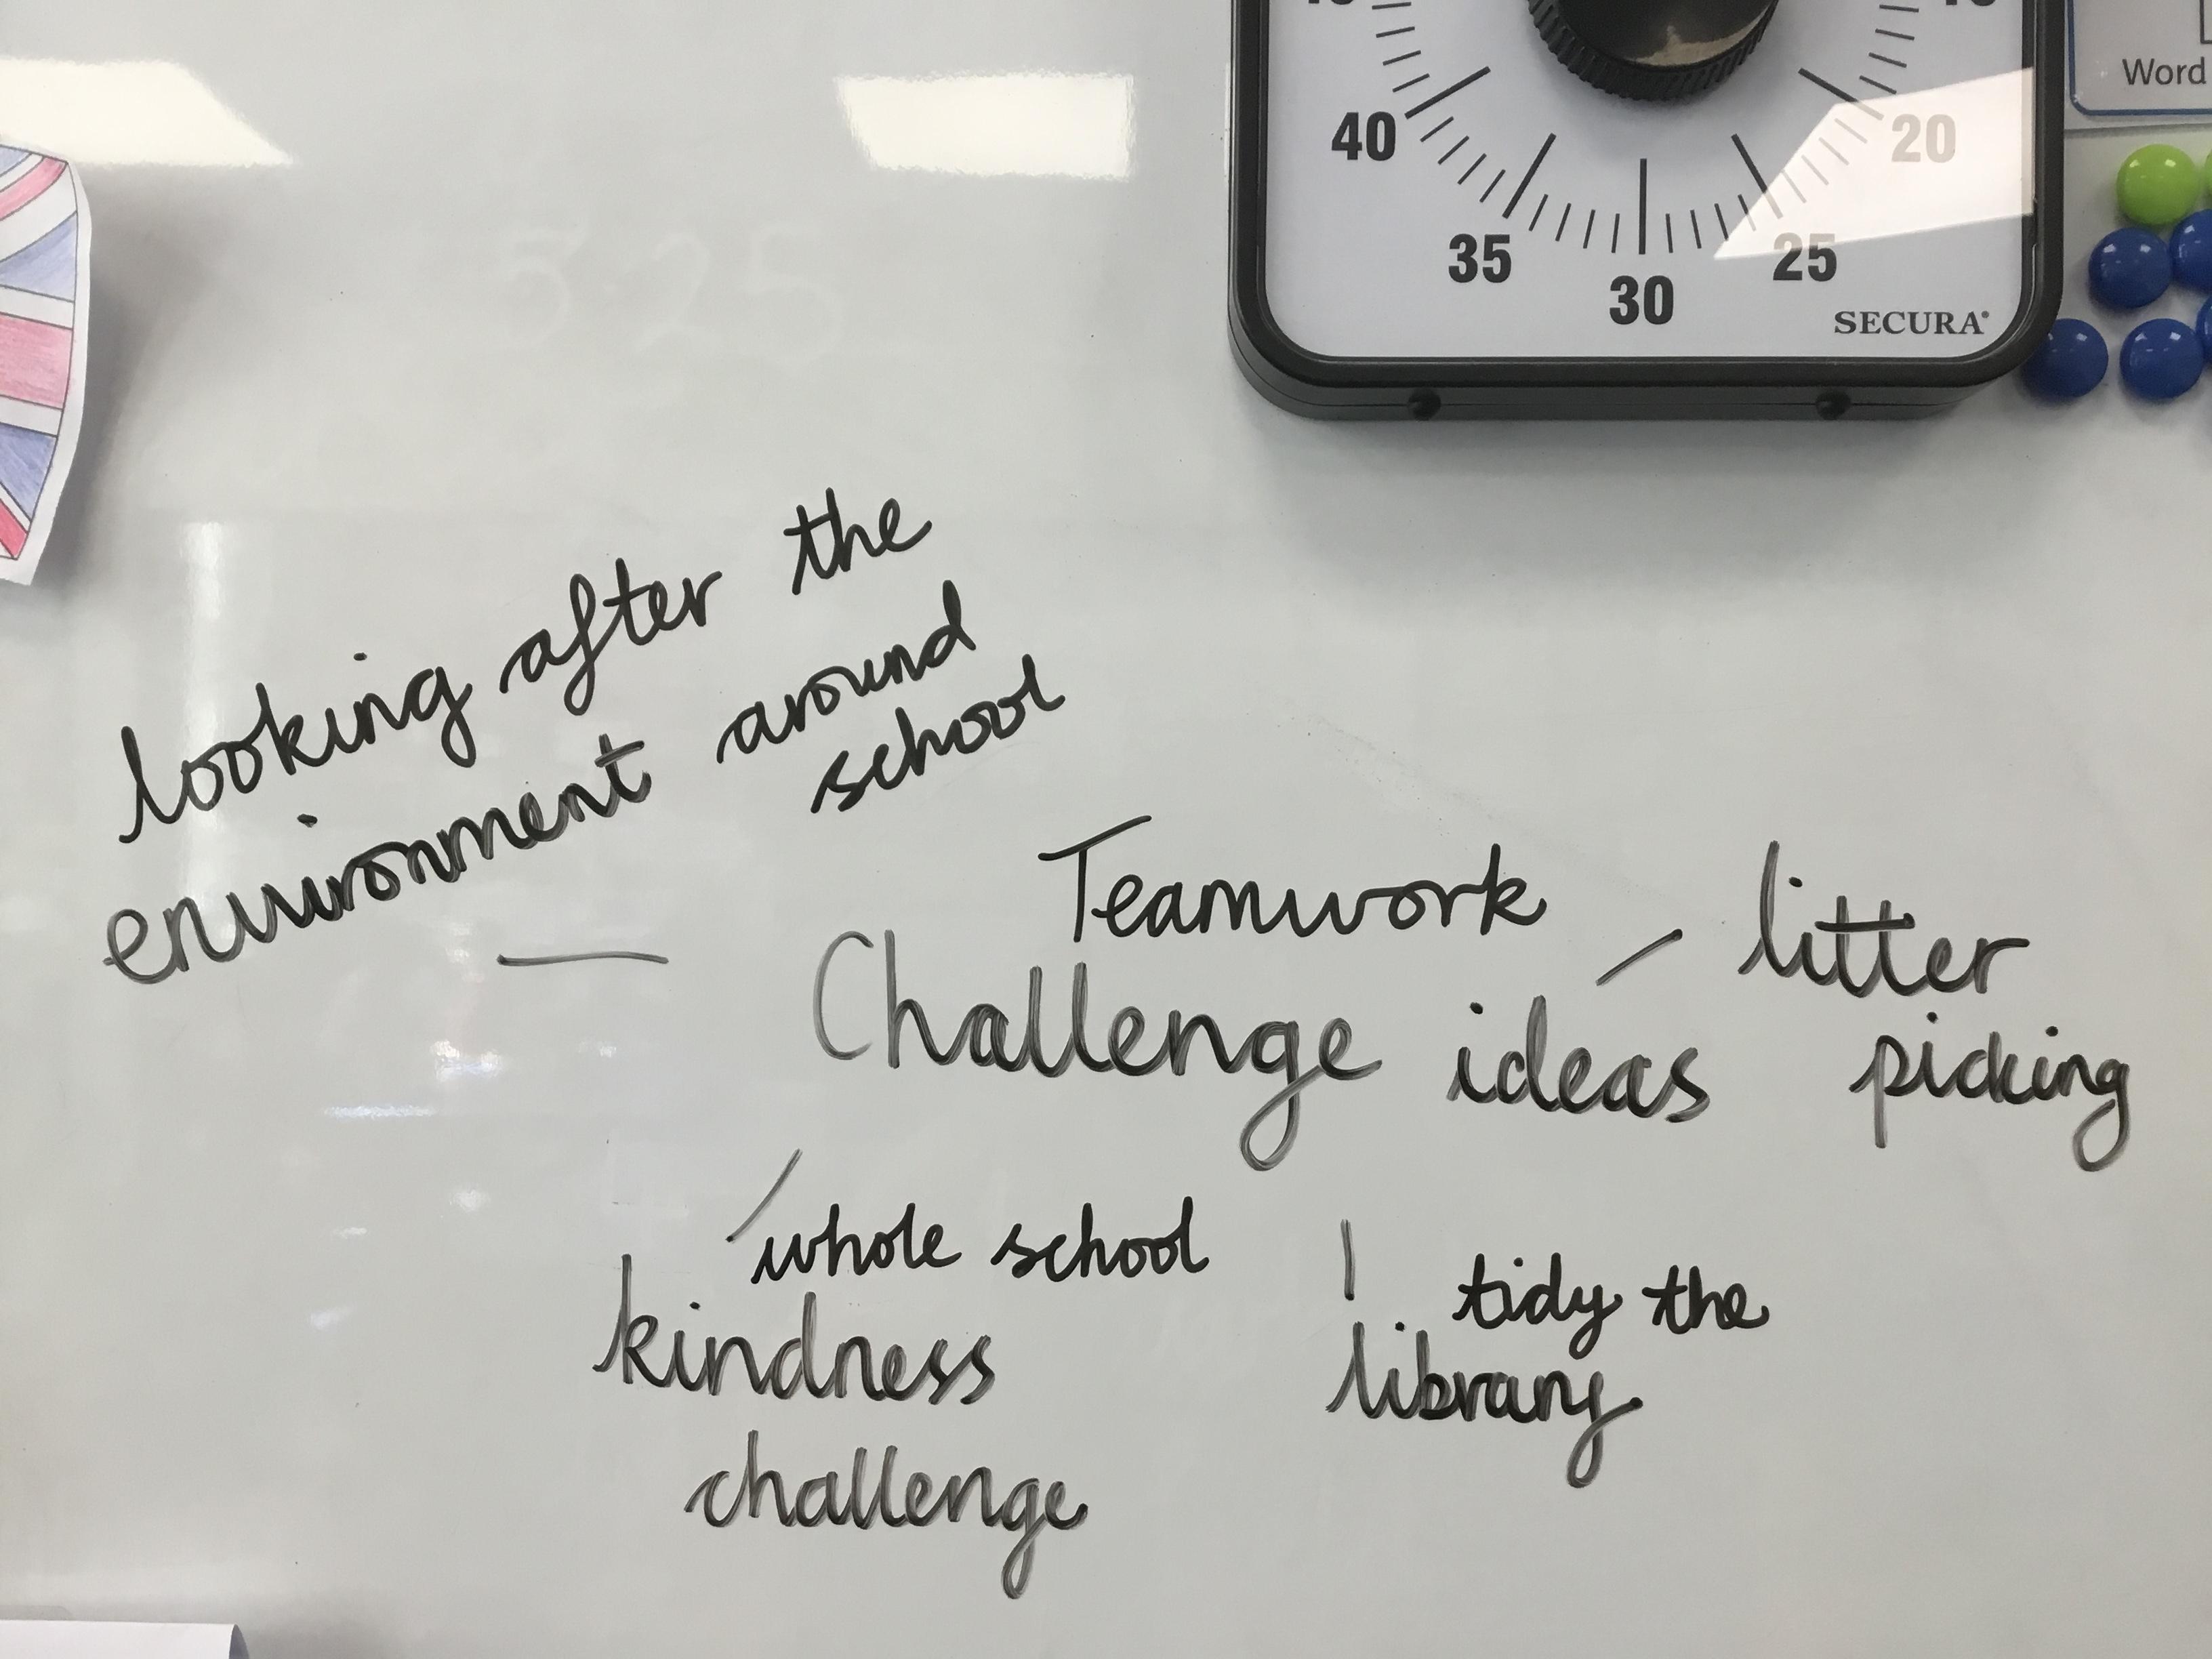 Word
40
20
35
25
30
SECURA®
looking after the
environment around
school
Teamwork
Challenge ideas
litter
picking
whole school
kindness
challenge
tidy the
library